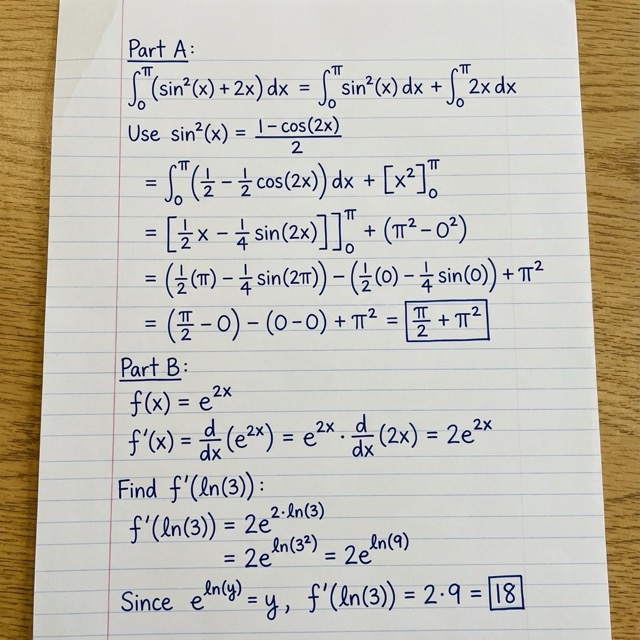 Part A:
∫₀^π (sin²(x) + 2x) dx = ∫₀^π sin²(x) dx + ∫₀^π 2x dx
Use sin²(x) = (1 - cos(2x))/2
= ∫₀^π (1/2 - 1/2 cos(2x)) dx + [x²]₀^π
= [1/2 x - 1/4 sin(2x)]]₀^π + (π² - 0²)
= (1/2 (π) - 1/4 sin(2π)) - (1/2 (0) - 1/4 sin(0)) + π²
= (π/2 - 0) - (0 - 0) + π² = π/2 + π²
Part B:
f(x) = e^(2x)
f'(x) = d/dx (e^(2x)) = e^(2x) · d/dx (2x) = 2e^(2x)
Find f'(ln(3)):
f'(ln(3)) = 2e^(2·ln(3))
= 2e^(ln(3²)) = 2e^(ln(9))
Since e^(ln(y)) = y, f'(ln(3)) = 2·9 = 18